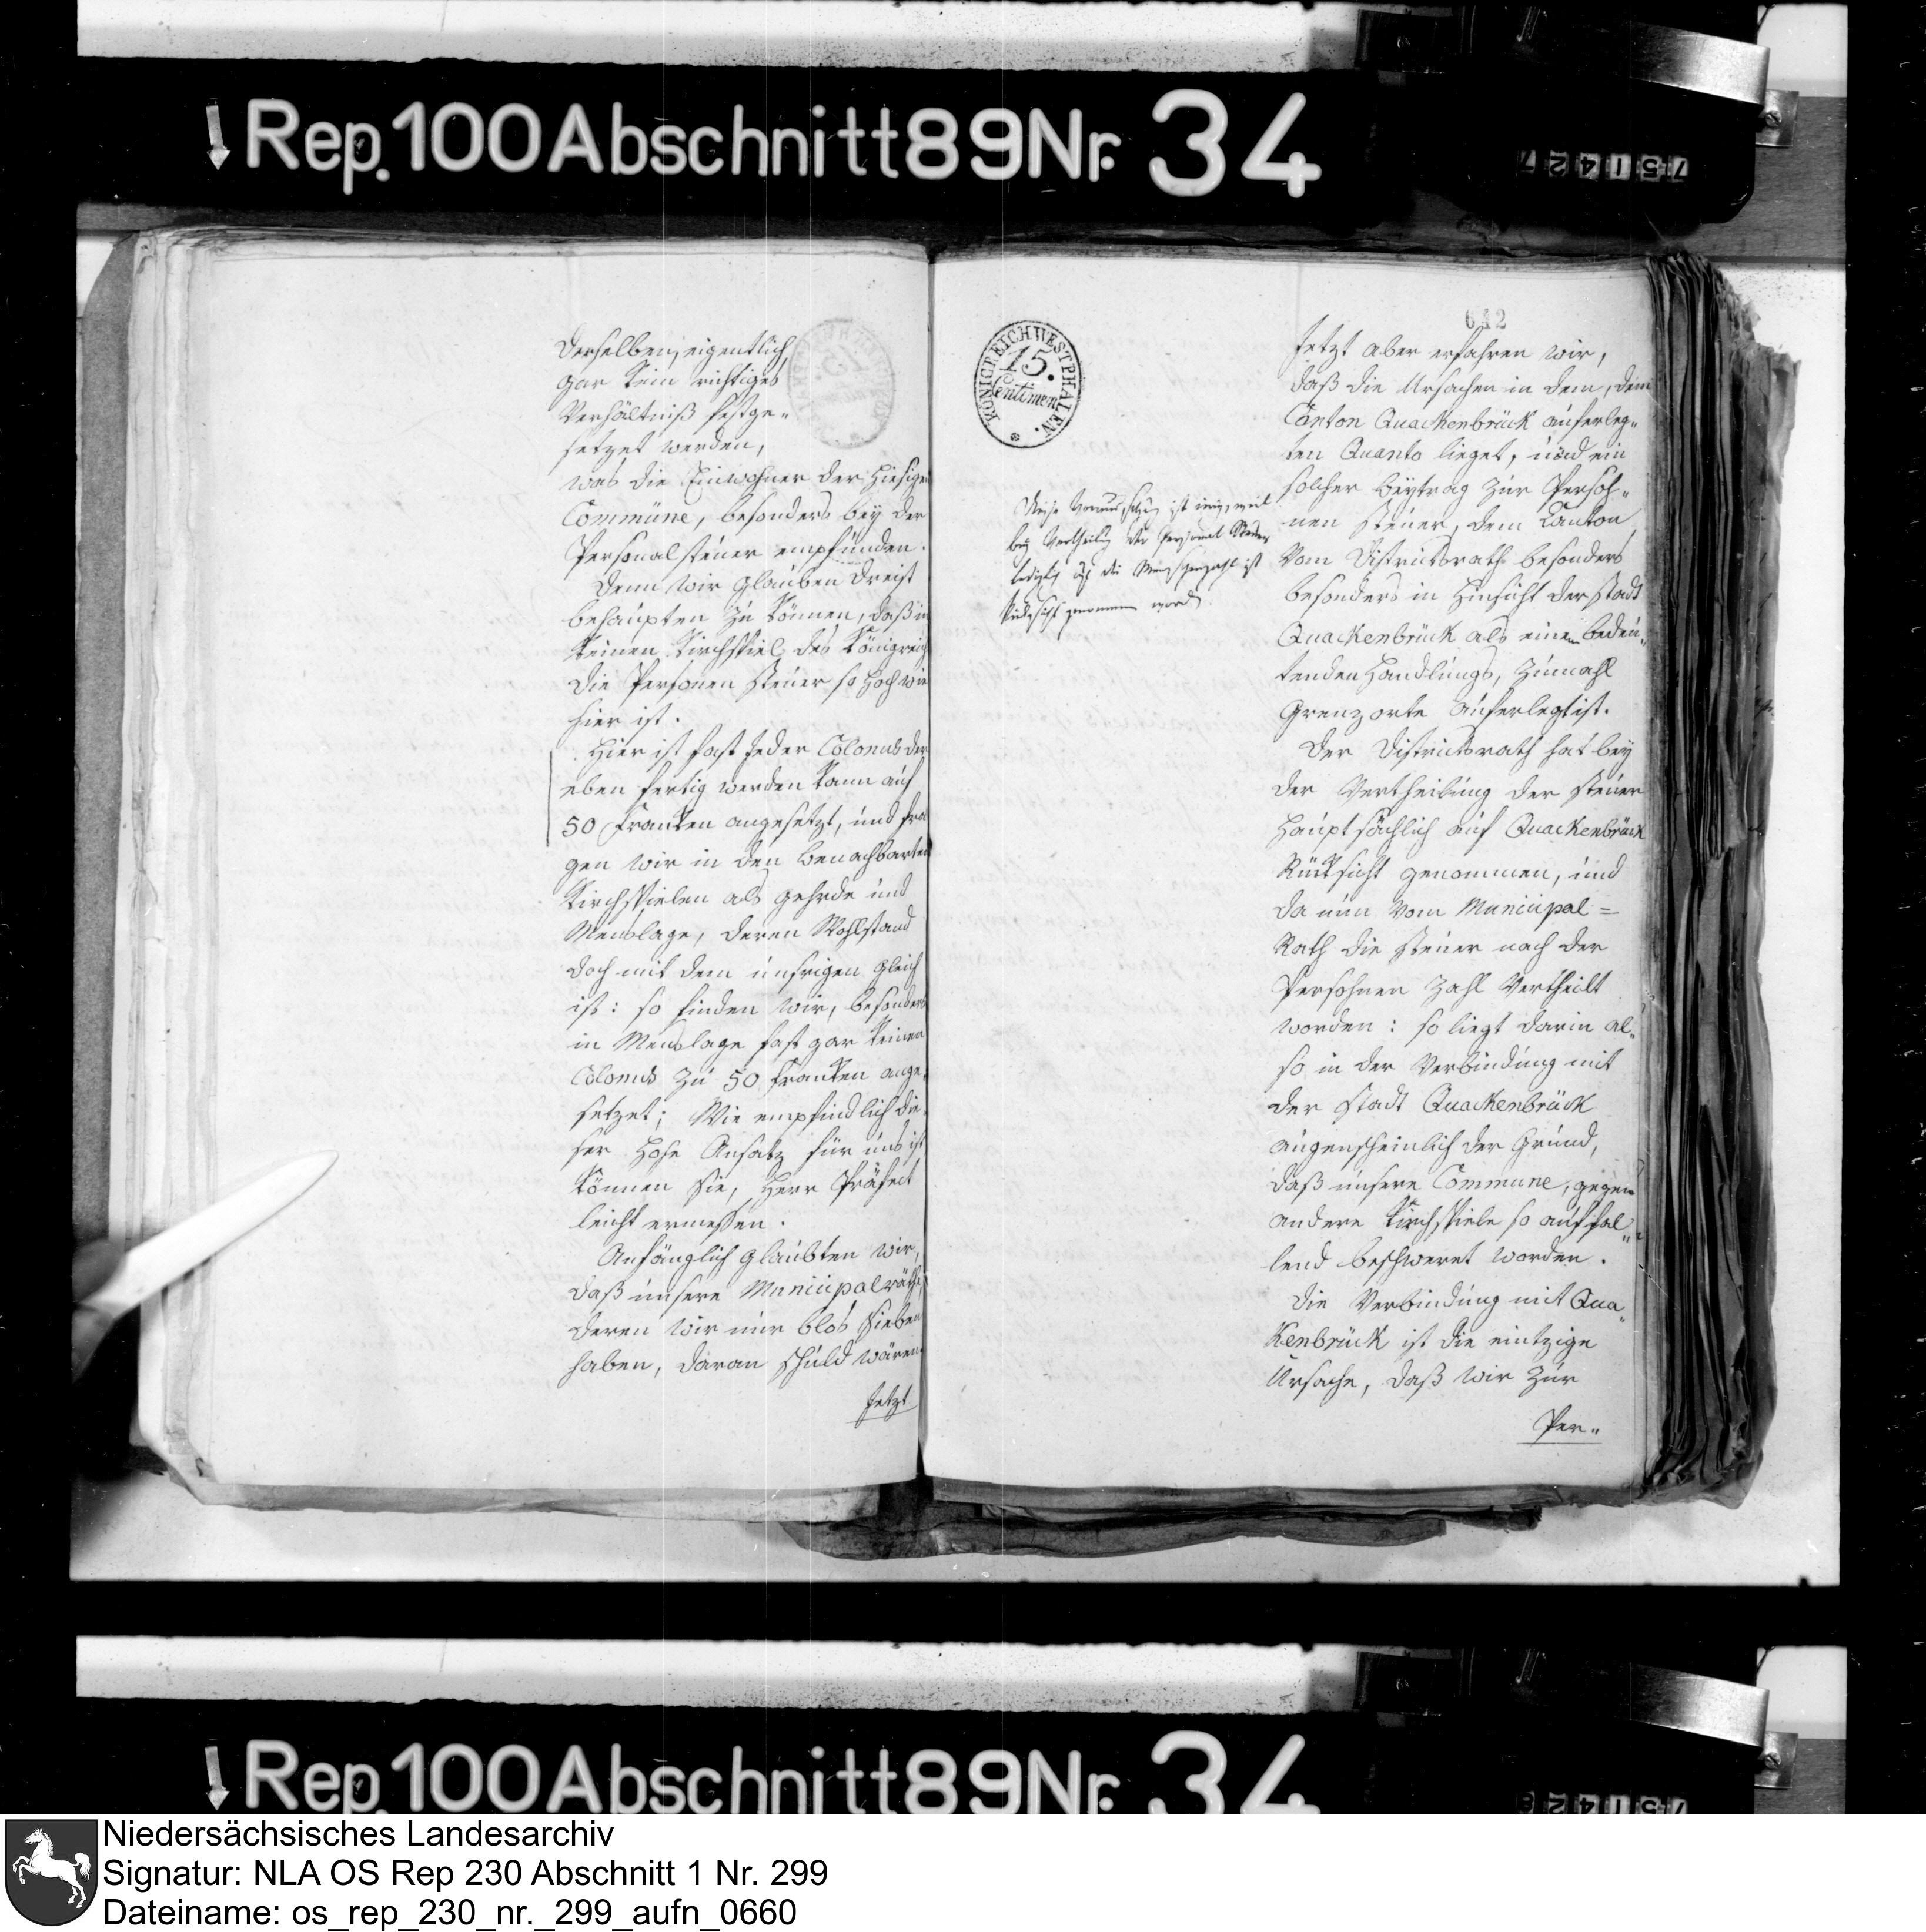 Rep. 100 Abschnitt 89 Nr. 34
751427
derselben, eigentlich
gar kein richtiges
Verhältniß festge„
setzet werden,
was die Einwohner der hiesigen
Commüne, besonders bey der
Personalsteuer empfunden.
Denn wir glauben dreist
behaupten zu können, daß in
keinen Kirchspiel des Königreich
die Personen steuer so hoch wie
hier ist.
Hier ist fast Jeder Colonus der
eben fertig werden kann auf
50 Franken angesetzt, und fra
gen wir in den benachbarten
Kirchspielen als Gehrde und
Menslage, deren Wohlstand
doch mit dem unsrigen gleich
ist: so finden wir, besonders
in Menslage fast gar keinen
Colonus zu 50 Franken ange„
setzet; Wie empfindlich die„
ser hohe Ansatz für uns ist
können Sie, Herr Präfect
leicht ermessen.
Anfänglich glaubten wir,
daß unsere Municipalräthe,
deren wir nur blos Sieben
haben, daran schuld wären.
Jetzt
642
KÖNIGREICH WESTPHALEN.
15.
Centimen
Diese Voraussetzung ist irrig, weil
bey Vertheilung der Personal Steuer
lediglich auf die Menschenzahl ist
Rücksicht genommen worden.
Jetzt aber erfahren wir,
daß die Ursachen in dem, dem
Canton Quackenbrück auferleg„
ten Quanto lieget, und ein
solcher beytrag zur Persoh„
nen steuer, dem Canton
vom Districtsrath besonders
besonders in Hinsicht der Stadt
Quackenbrück als einem bedeu„
tenden Handlungs, zumahl
Grenzorte auferlegt ist.
Der Districtsrath hat bey
der Vertheilung der steuer
hauptsächlich auf Quackenbrück
Rücksicht genommen, und
da nun vom Municipal=
Rath die steuer nach der
Persohnen Zahl Vertheilt
worden: so liegt darin al„
so in der Verbindung mit
der Stadt Quackenbrück
augenscheinlich der Grund,
daß unsere Commune, gegen
andere Kirchspiele so auffal„
lend beschweret worden.
Die Verbindung mit Qua„
kenbrück ist die eintzige
Ursache, daß wir zur
Per„
Rep. 100 Abschnitt 89 Nr. 34
751428
Niedersächsisches Landesarchiv
Signatur: NLA OS Rep 230 Abschnitt 1 Nr. 299
Dateiname: os_rep_230_nr._299_aufn_0660